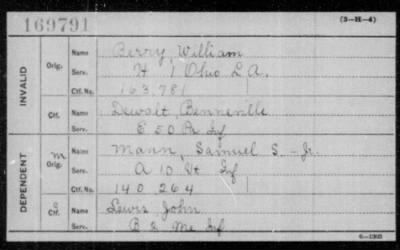 169791
(3-H-4)
INVALID
Orig. Name Berry, William
Serv. H 1 Ohio L A.
Ctf. No. 163,781
Ctf. Name Dewalt, Benneville
Serv. E 50 Pa Inf
DEPENDENT
m Orig. Name Mann, Samuel S. Jr.
Serv. A 10 Vt Inf
Ctf. No. 140 264
Ctf. Name Lewis John
Serv. B 2 Me Inf